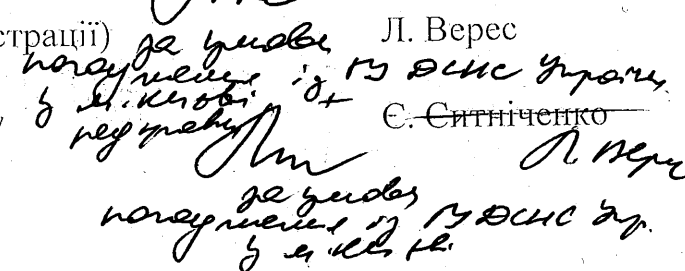 страції) Л. Верес
за умови
погодження із ГУ ДСНС України
у м. Києві
Є. Ситніченко
Л. Вере
за умови
погодження із ГУ ДСНС Укр.
у м. Києві